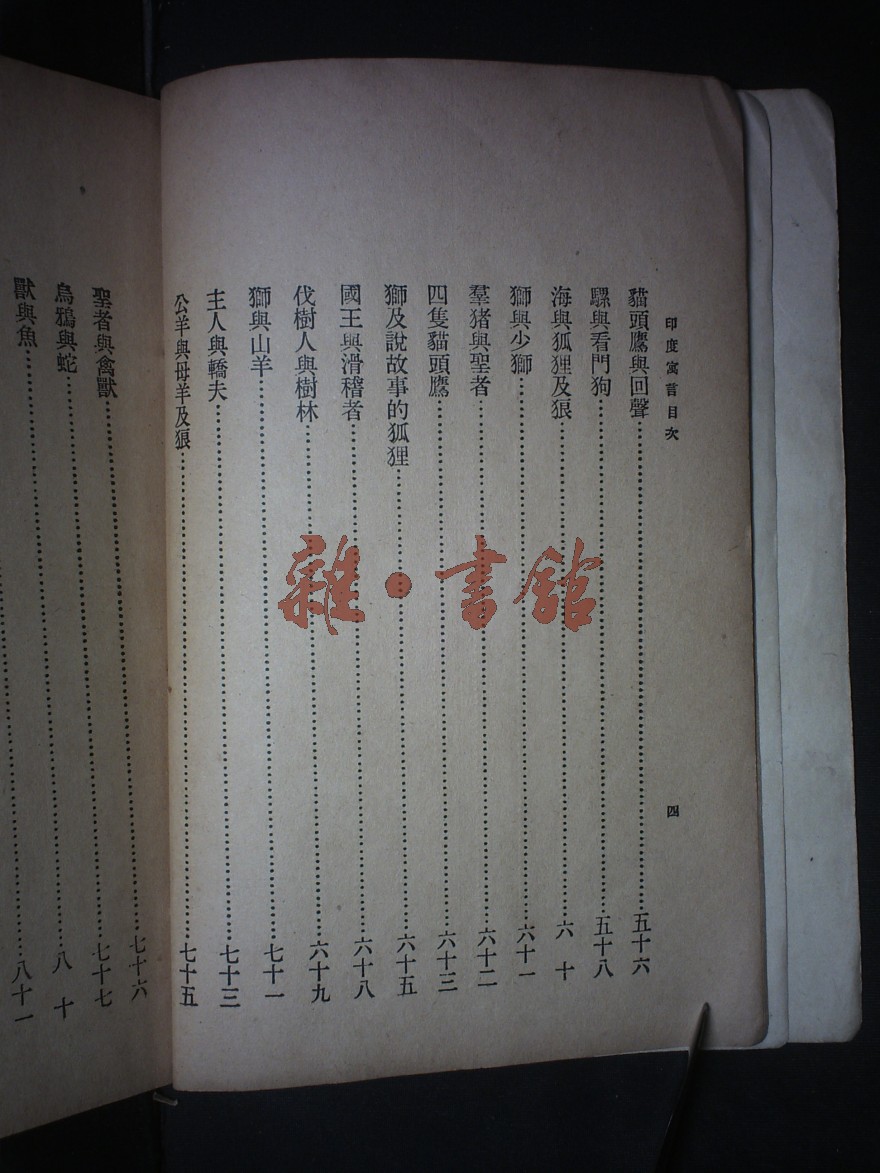 印度寓言目次
四
貓頭鷹與回聲……五十六
騾與看門狗……五十八
海與狐狸及狼……六十
獅與少獅……六十一
羣猪與聖者……六十二
四隻貓頭鷹……六十三
獅及說故事的狐狸……六十五
國王與滑稽者……六十八
伐樹人與樹林……六十九
獅與山羊……七十一
主人與轎夫……七十三
公羊與母羊及狼……七十五
……七十六
聖者與禽獸……七十七
烏鴉與蛇……八十
獸與魚……八十一
雜·書館